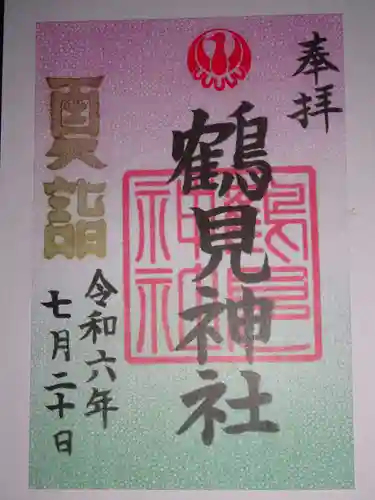 奉拝
鶴見神社
鶴見
神社
令和六年
七月二十日
夏詣